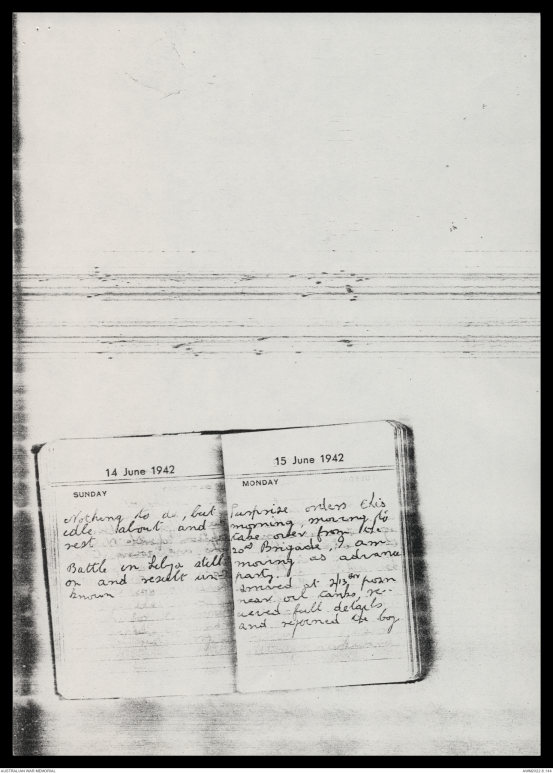 14 June 1942
SUNDAY
Nothing to do, but
idle about and
rest
Battle in Libya still
on and result un-
known
15 June 1942
MONDAY
Surprise orders this
morning, moving to
take over from the
20th Brigade, I am
moving as advance
party.
Arrived at 2/13 Bn posn
near oil tanks, re-
ceived full details,
and rejoined the boy
AUSTRALIAN WAR MEMORIAL